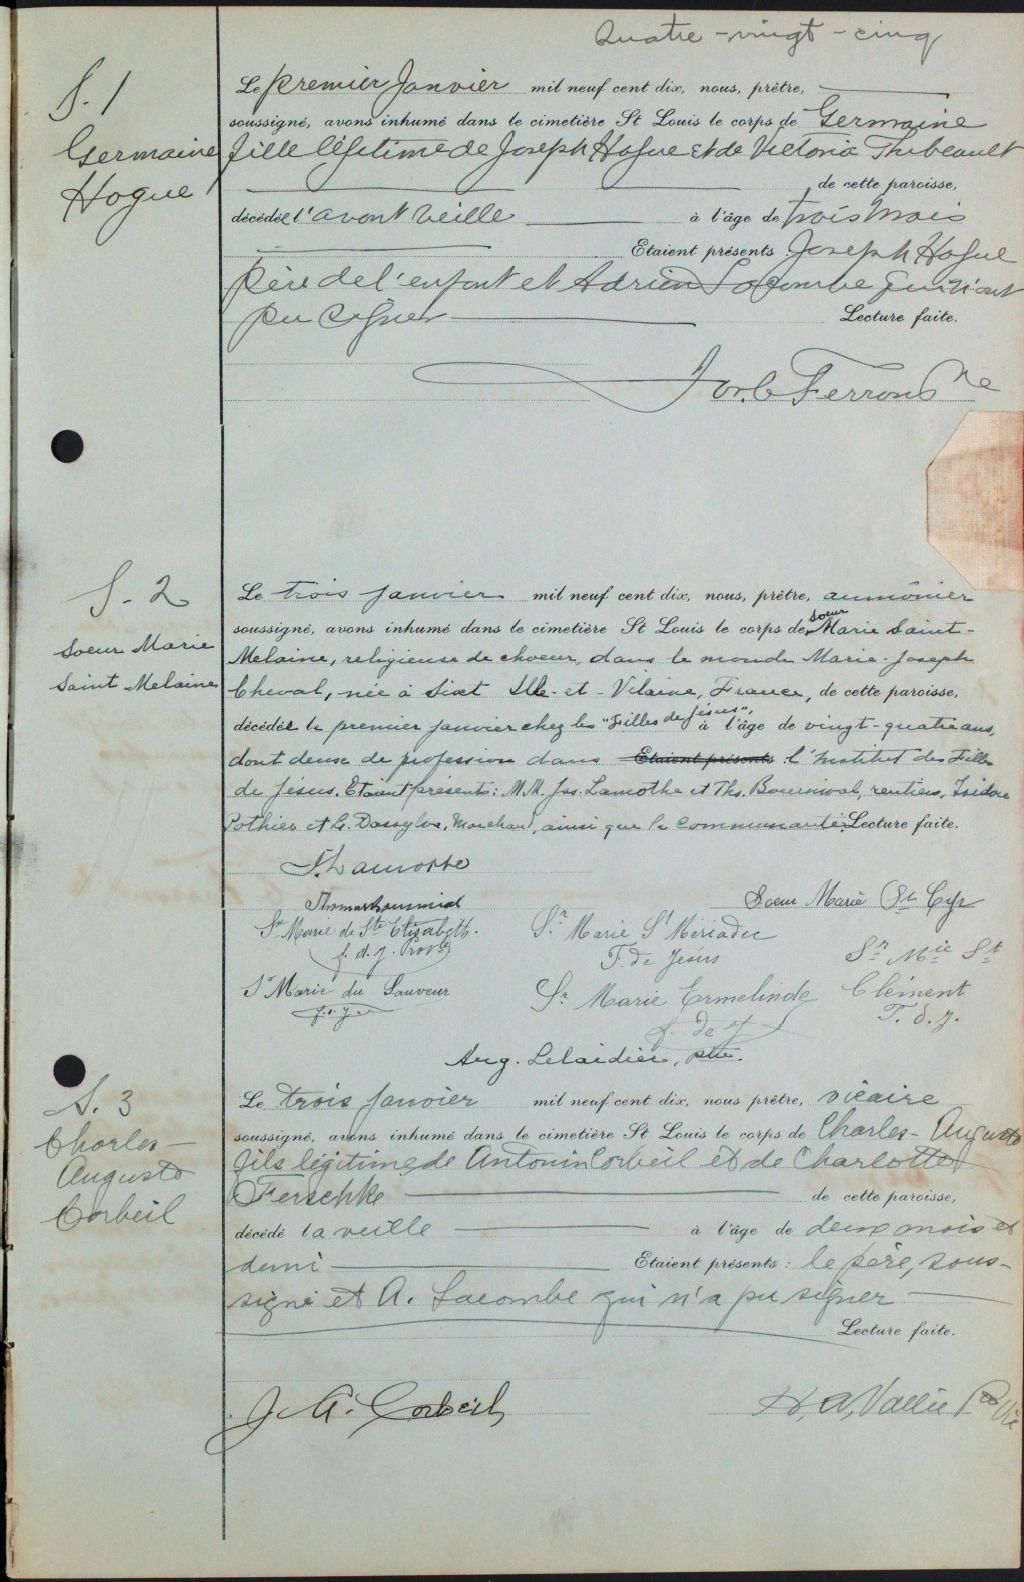 Quatre-vingt-cinq
S. 1
Germaine
Hogue
Le premier Janvier mil neuf cent dix, nous, prêtre,
soussigné, avons inhumé dans le cimetière St Louis le corps de Germaine
fille légitime de Joseph Hogue et de Victoria Thibeault
de cette paroisse,
décédée l'avant veille à l'âge de trois mois
Etaient présents Joseph Hogue
père de l'enfant et Adrien Lacombe qui n'ont
pu signer Lecture faite.
Jos. C Ferron Ptre
S. 2
Soeur Marie
Saint Melaine
Le trois janvier mil neuf cent dix, nous, prêtre, aumônier
soussigné, avons inhumé dans le cimetière St Louis le corps de Soeur Marie Saint-
Melaine, religieuse de choeur, dans le monde Marie-Joseph
Cheval, née à Sixt Ille-et-Vilaine, France, de cette paroisse,
décédée le premier janvier chez les "Filles de Jésus", à l'âge de vingt-quatre ans,
dont deux de profession dans Etaient présents l'Institut des Filles
de Jésus. Etaient présents: M.M. Jos. Lamothe et Ths. Bournival, rentiers, Isidore
Pothier et Marchand, ainsi que la communauté. Lecture faite.
J. Lamothe
Thomas Bournival
Soeur Marie St Cyr
Sr Marie de Ste Elisabeth.
f. d. J. Prov
Sr Marie St Mériadec
F. de Jésus
Sr Mie St
Clément
F. d. J.
Sr Marie du Sauveur
f. d. J.
Sr Marie Ermelinde
f. de J
Aug. Lelaidier, ptre.
S. 3
Charles-
Auguste
Corbeil
Le trois janvier mil neuf cent dix, nous prêtre, vicaire
soussigné, avons inhumé dans le cimetière St Louis le corps de Charles-Auguste
fils légitime de Antonin Corbeil et de Charlotte
Ferschke de cette paroisse,
décédé la veille à l'âge de deux mois et
demi Etaient présents: le père, sous-
signé et A. Lacombe qui n'a pu signer
Lecture faite.
J. A. Corbeil
H. A. Vallée Ptre Vic